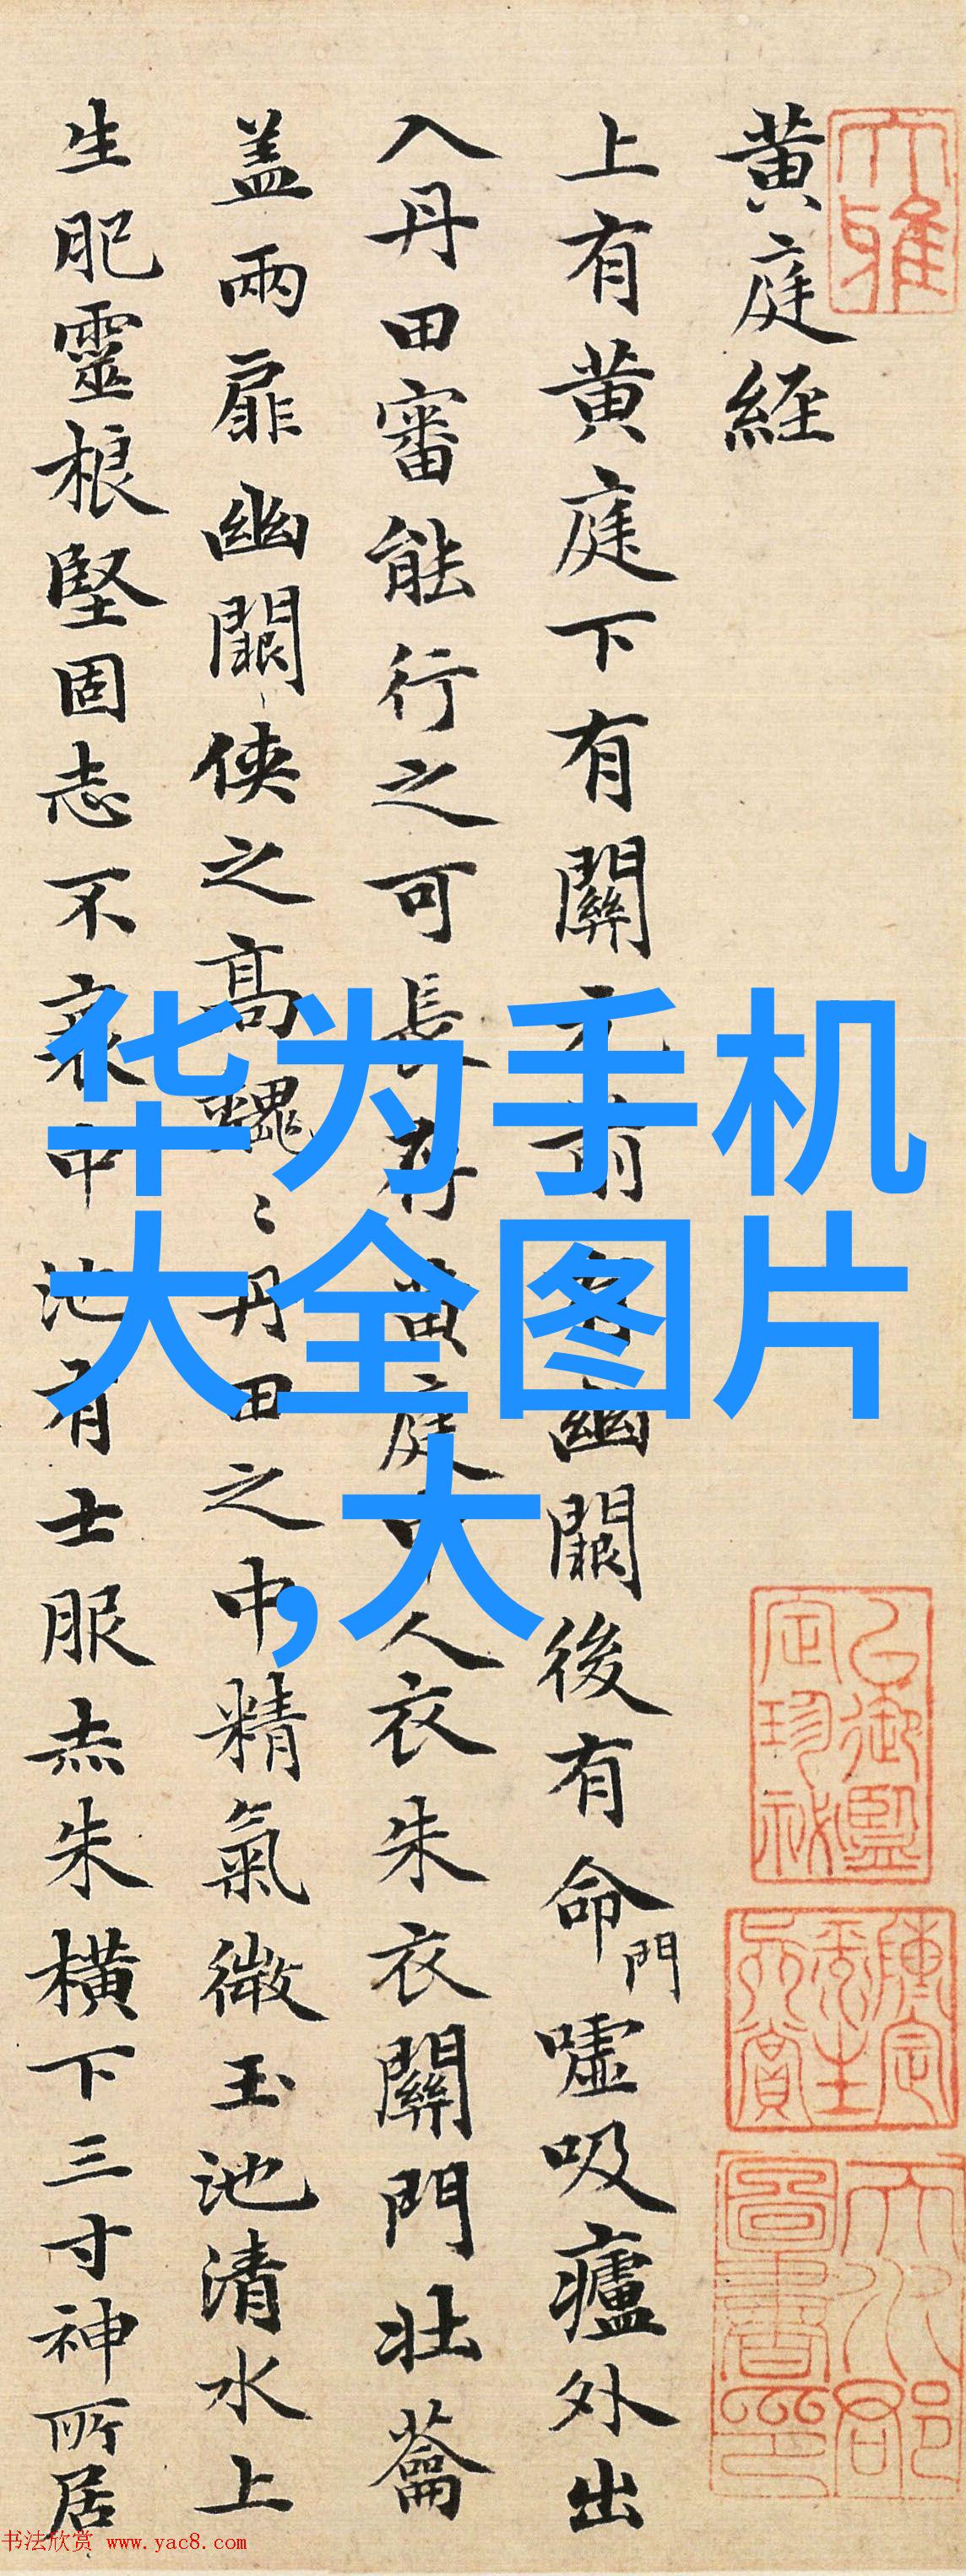 大雅
黄庭経
上有黄庭下有關元前有幽闕後有命門嘘吸廬外出
入丹田審能行之可長存黄庭中人衣朱衣關門壯蘥
盖兩扉幽闕侠之高巍〻丹田之中精氣微玉池清水上
生肥靈根堅固志不衰中池有士服赤朱横下三寸神所居
华为手机
大全图片
,大
书法欣赏 www.yac8.com